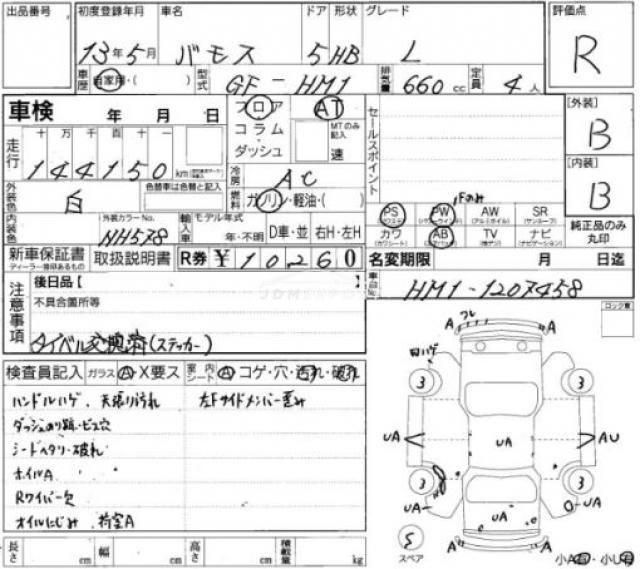 出品番号
初度登録年月 車名 ドア 形状 グレード
13年5月 バモス 5 HB L
評価点
R
車歴 自家用・( ) 型式 GF-HM1 排気量 660cc 定員 4人
車検 年 月 日
フロア AT
コラム・ダッシュ MTのみ 速
セールスポイント
[外装]
B
走行 十 万 千 百 十 一
144150km
冷房 AC
燃料 ガソリン・軽油・( )
[内装]
B
外装色 白 色替車は色替と記入
Fのみ
PS PW AW SR
(パワステ) (パワーウィンド) (アルミホイル) (サンルーフ)
カワ AB TV ナビ
(カワシート) (エアバック) (ナビゲーション)
純正品のみ丸印
内装色 外装カラーNo. NH578
輸入車 モデル年式 年・不明 D車・並 右H・左H
新車保証書 取扱説明書 R券 ¥10260
ディーラー捺印あるもの
名変期限 月 日迄
注意事項
後日品【 】
不具合箇所等
タイベル交換済(ステッカー)
車台No. HM1-1207458
ロック車
検査員記入 ガラス A・X要ス 室内シート A コゲ・穴・汚れ・破れ
ハンドルハゲ、天張り汚れ 左Fサイドメンバー歪み
ダッシュのり跡・ビス穴
シートヘタリ・破れ
ホイルA
Rワイパー欠
オイルにじみ 荷室A
A フレ A
ハゲ
3 3
UA UA AU
3 3
UA UA UA
5
スペア
A A
小A・小U
長さ cm 幅 cm 高さ cm 積載量 kg